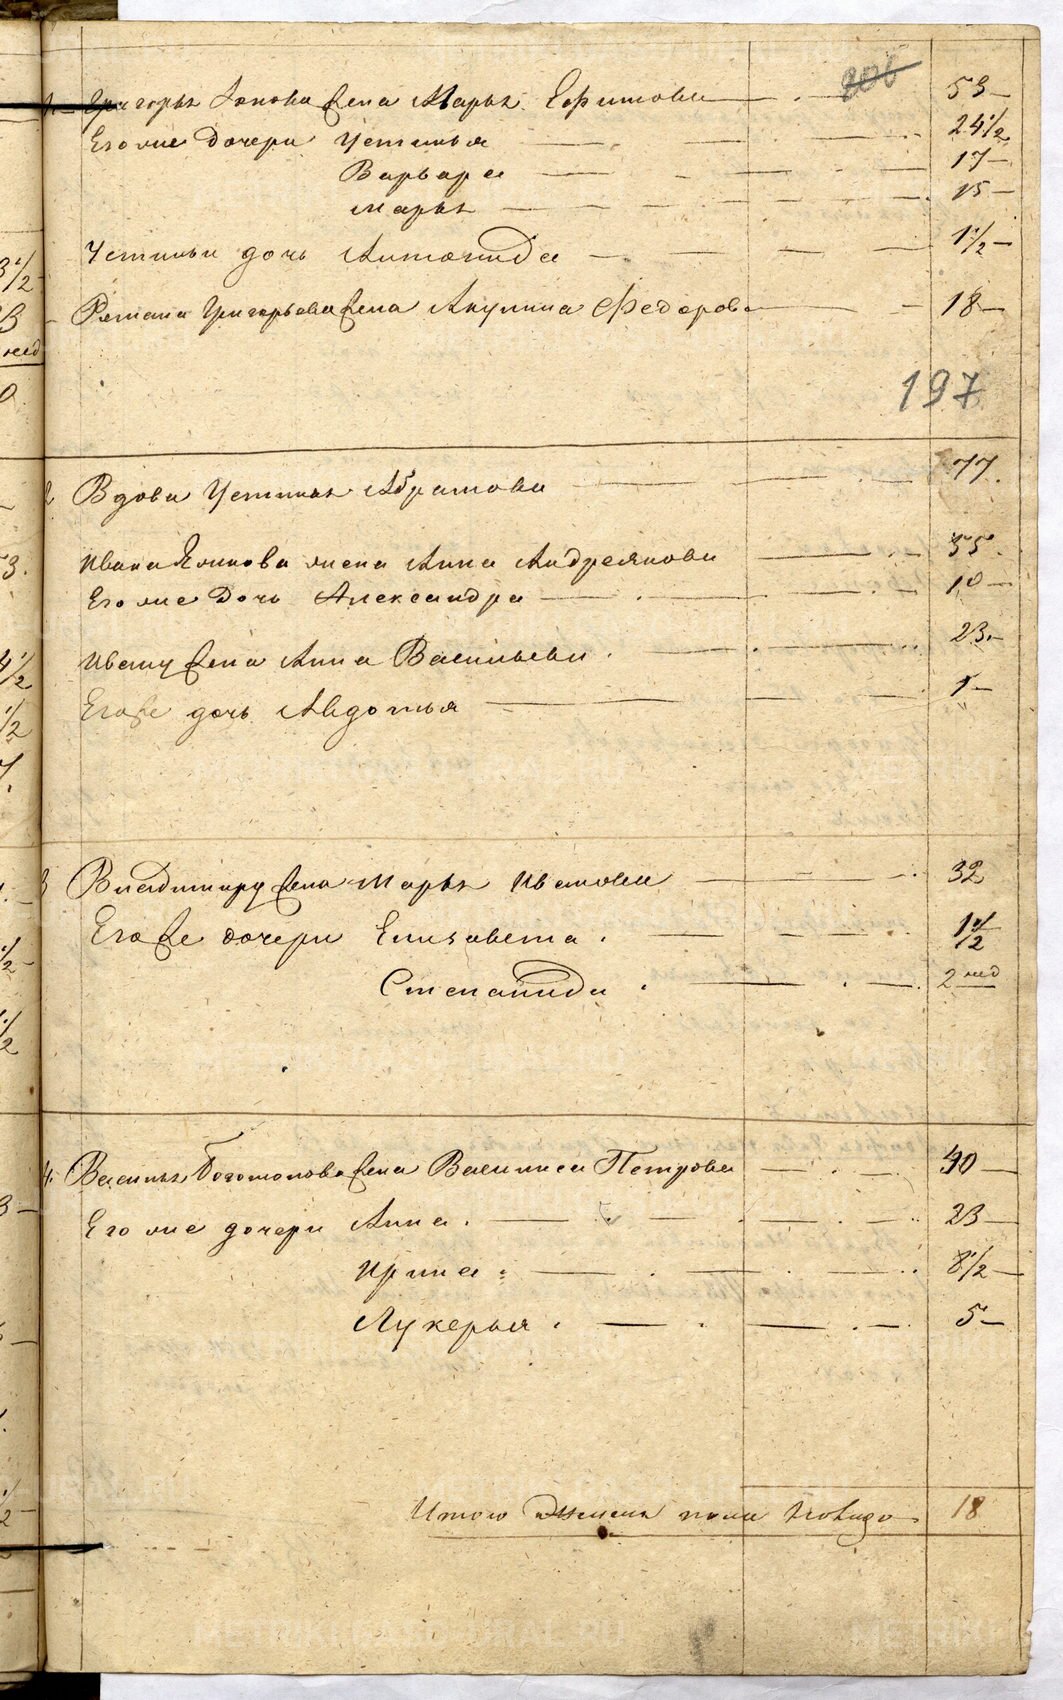 206
1. Григорья Iонова жена Марья Ефимова 53
Его же дочери Устинья 24 1/2
Варвара 17
Марья 15
Устиньи дочь Антонида 1 1/2
Романа Григорьева жена Акулина Федорова 18
197
2 Вдова Устинья Абрамова 77.
Ивана Якимова жена Анна Андреянова 55.
Его же дочь Александра 10
Ивану жена Анна Васильева. 23.
Его же дочь Авдотья 1
3 Владимиру жена Марья Иванова 32
Его же дочери Елизавета. 1 1/2
Степанида 2 нед
4. Василья жена Василиса Петрова 40
Его же дочери Анна. 23
Ирина 8 1/2
Лукерья. 5
Итого женска пола на лицо 18